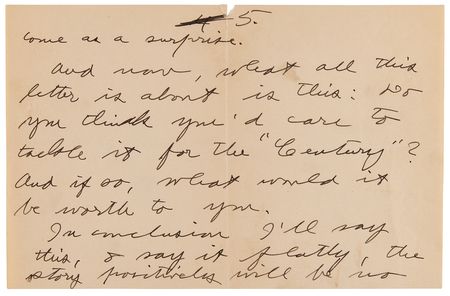 5.
come as a surprise.
And now, what all this
letter is about is this: Do
you think you'd care to
tackle it for the "Century"?
And if so, what would it
be worth to you.
In conclusion I'll say
this, & say it flatly, the
story positively will be no